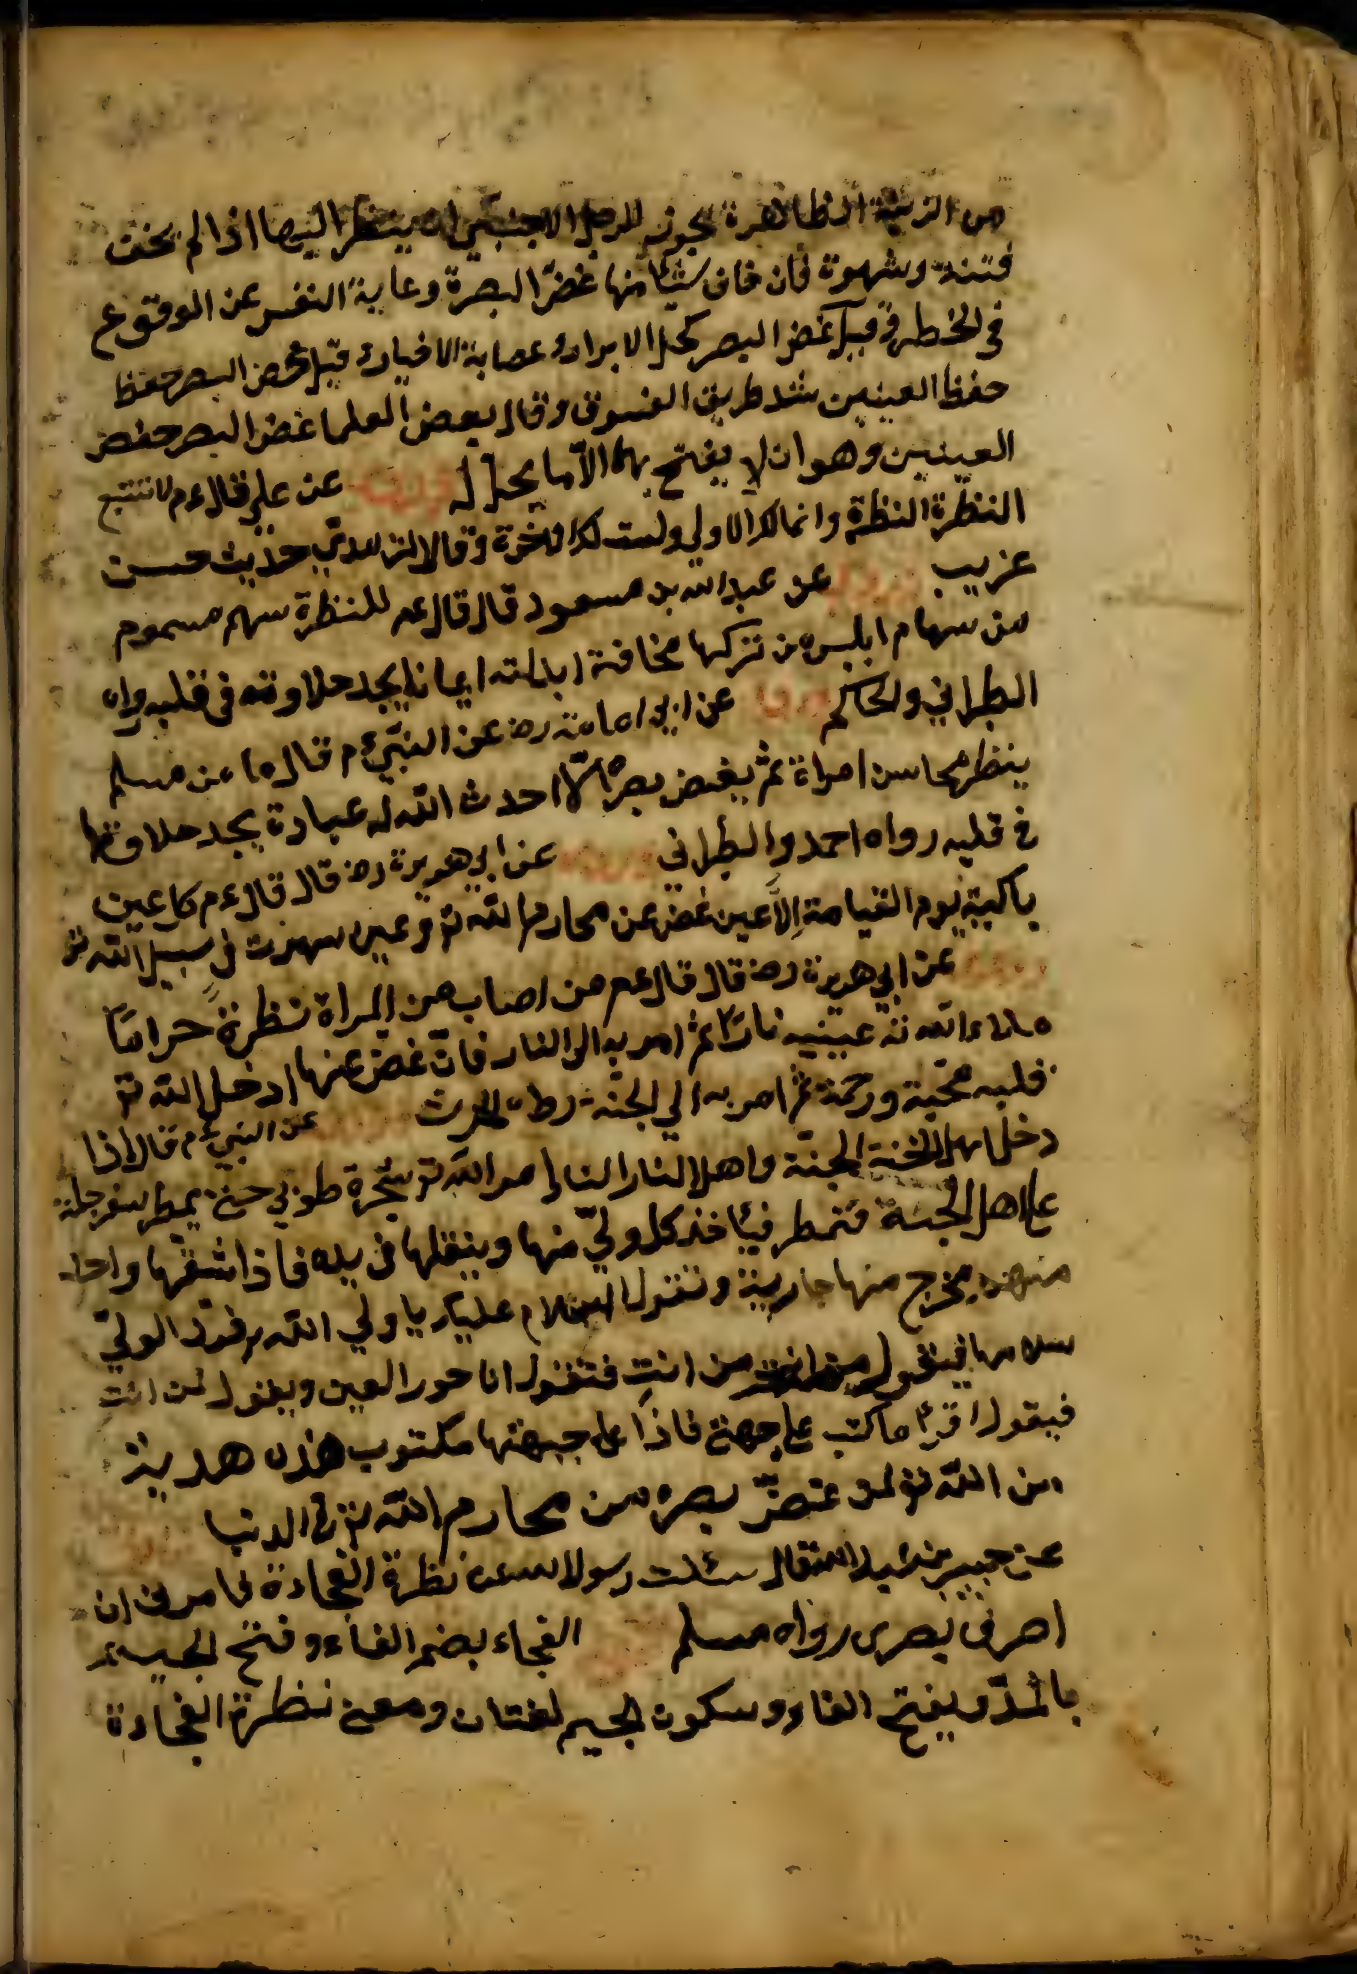 من الزينة الظاهرة يجوز للرجل الاجنبي ان ينظر اليها اذا لم يخف
فتنة وشهوة فان خاف شيئا منها غض البصرة وعاية النفس عن الوقوع
في الخطر وقيل غض البصر كحل الابرار وعصابة الاخيار وقيل غض البصر حفظ
حفظ العينين سد طريق الفسوق وقال بعض العلما غض البصر حفض
العينين وهو ان لا يفتح بهما الا ما يحل له عن علي قال عم لا تتبع
النظرة النظرة وانما لك الاولي وليست لك الاخرة وقال الترمدي حديث حسن
غريب عن عبدالله بن مسعود قال قال عم للنظرة سهم مسموم
من سهام ابليس من تركها مخافة ابدلته ايمانا يجد حلاوته في قلبه رواه
الطبراني والحاكم عن ابي امامة رض عن النبي عم قال ما من مسلم
ينظر محاسن امراة ثم يغض بصره الا احدث الله له عبادة يجد حلاوتها
في قلبه رواه احمد والطبراني عن ابي هريرة رض قال قال عم كل عين
باكية يوم القيامة الا عين غض عن محارم الله تع وعين سهرت في سبيل الله تع
عن ابي هريرة رض قال قال عم من اصاب من المراة نظرة حراما
ملاء الله تع عينيه نارا ثم امر به الى النار فان غض عنها ادخل الله تع
قلبه محبة ورحمة ثم امر به الي الجنة
عن النبي عم قال اذا
دخل اهل الجنة الجنة واهل النار النار امر الله تع شجرة طوبي حتى يمطر سفرجلة
على اهل الجنة فتمطر فياخذ كل ولي منها وينقلها في يده فاذا شقها واحد
منهم يخرج منها جارية وتقول السلام عليك يا ولي الله يرد الولي
سلامها فيقول من انت فتقول انا حور العين ويقول لمن انت
فيقول اقرا ما كتب على جبهتي فاذا على جبهتها مكتوب هذه هدية
من الله تع لمن غض بصره من محارم الله تع في الدنيا
عن جبير بن عبد الله قال سئلت رسول الله عن نظرة الفجاءة فامرني ان
اصرف بصرى رواه مسلم الفجاء بضم الفاء وفتح الجيم
بالمد وبفتح الفاء وسكون الجيم لغتان ومعنى نظرة الفجاءة